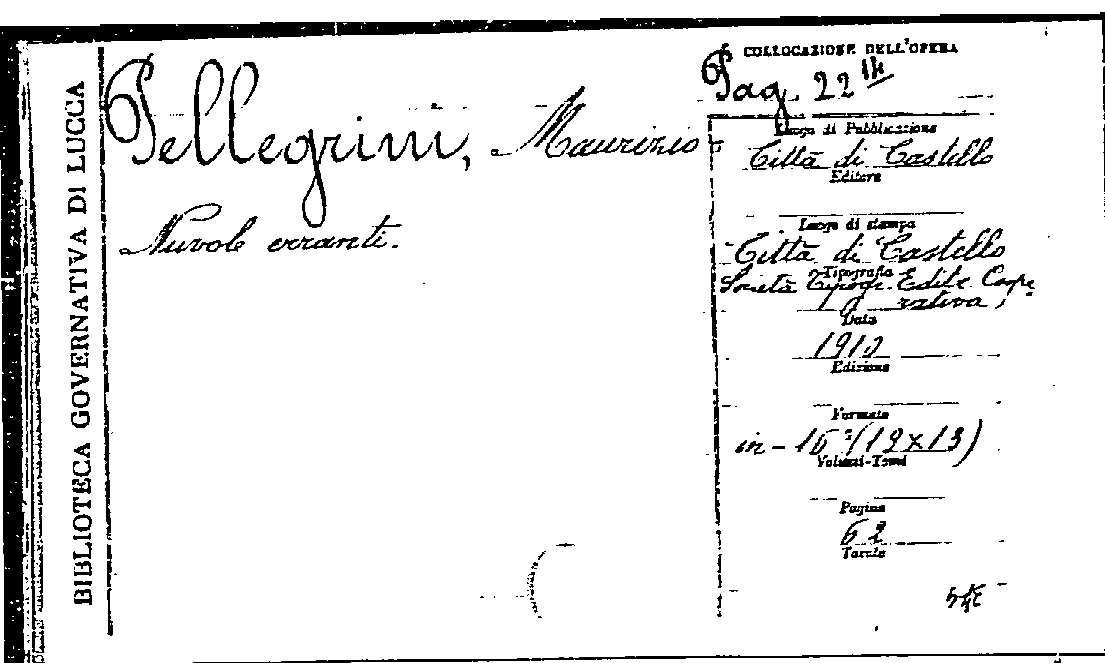 BIBLIOTECA GOVERNATIVA DI LUCCA
Pellegrini, Maurizio
Nuvole erranti.
COLLOCAZIONE DELL'OPERA
Pag. 22
Luogo di Pubblicazione
Città di Castello
Editore
Luogo di stampa
Città di Castello
Tipografia
Società Tipogr. Edit. Coope
rativa,
Data
1910
Edizione
Formato
in-16°(19x13)
Volumi-Tomi
Pagine
62
Tavole